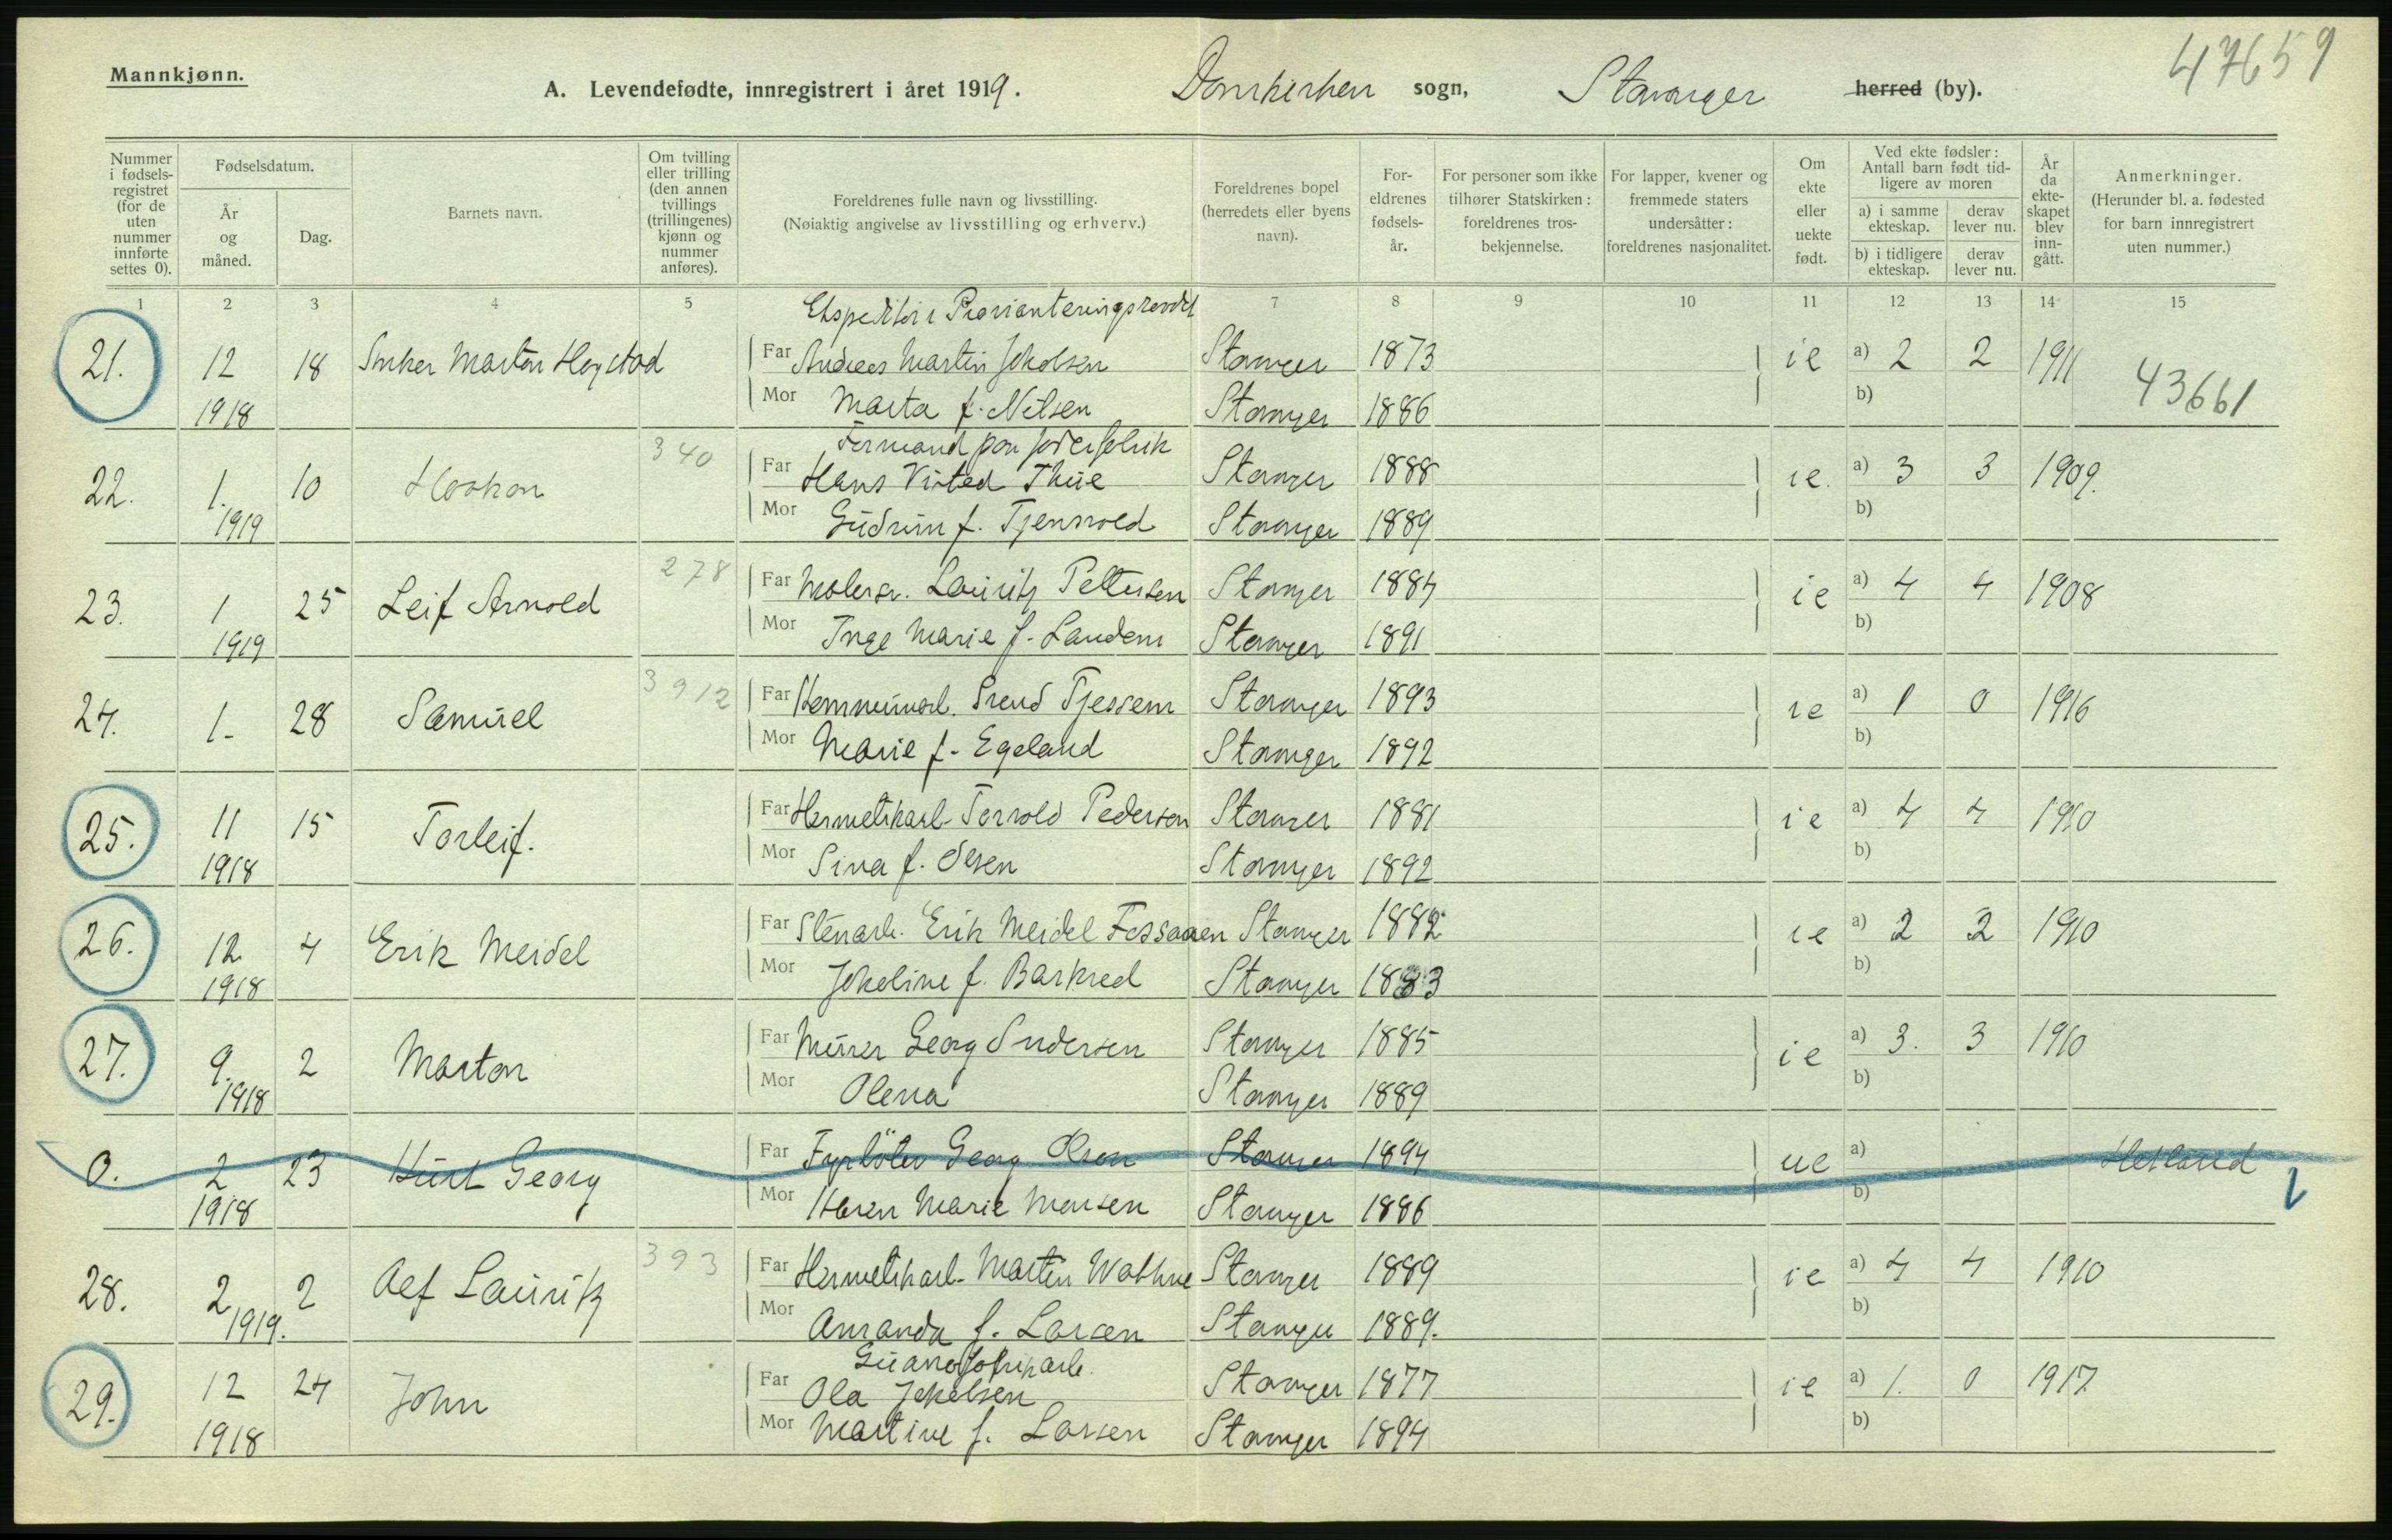 47659
Mannkjønn.
A. Levendefødte, innregistrert i året 1919. Domkirken sogn, Stavanger herred (by).
Nummer i fødsels-registret (for de uten nummer innførte settes 0).
Fødselsdatum.
År og måned.
Dag.
Barnets navn.
Om tvilling eller trilling (den annen tvillings (trillingenes) kjønn og nummer anføres).
Foreldrenes fulle navn og livsstilling.
(Nøiaktig angivelse av livsstilling og erhverv.)
Foreldrenes bopel (herredets eller byens navn).
For-eldrenes fødsels-år.
For personer som ikke tilhører Statskirken: foreldrenes tros-bekjennelse.
For lapper, kvener og fremmede staters undersåtter: foreldrenes nasjonalitet.
Om ekte eller uekte født.
Ved ekte fødsler: Antall barn født tid-ligere av moren
a) i samme ekteskap.
derav lever nu.
b) i tidligere ekteskap.
derav lever nu.
År da ekte-skapet blev inn-gått.
Anmerkninger.
(Herunder bl. a. fødested for barn innregistrert uten nummer.)
1 2 3 4 5 7 8 9 10 11 12 13 14 15
Ekspeditør i Provianteringsraadet
21. 12 18 Marton Hogstad Far Andreas Martin Jakobsen Stavanger 1873 ie a) 2 2 1911
1918 Mor Marta f. Nilsen Stavanger 1886 b) 43661
340 Formand paa
22. 1. 10 Haakon Far Hans Visted Thue Stavanger 1888 ie. a) 3 3 1909.
1919 Mor Gudrun f. Tjensvold Stavanger 1889 b)
278
23. 1 25 Leif Arnold Far Malersv. Lauritz Pettersen Stavanger 1884 ie a) 4 4 1908
1919 Mor Inge Marie f. Stavanger 1891 b)
3912
24. 1- 28 Samuel Far Svend Tjessem Stavanger 1893 ie a) 1 0 1916
Mor Marie f. Egeland Stavanger 1892 b)
25. 11 15 Torleif. Far Hermetikarb. Torvald Pedersen Stavanger 1881 ie a) 4 4 1910
1918 Mor Sina f. Olsen Stavanger 1892 b)
26. 12 4 Erik Meidel Far Stenarb. Erik Meidel Fossaaen Stavanger 1882 ie a) 2 2 1910
1918 Mor Jakoline f. Barkved Stavanger 1883 b)
27. 9. 2 Marton Far Murer Georg Andersen Stavanger 1885 ie a) 3. 3 1910
1918 Mor Olena Stavanger 1889 b)
0. 2 23 Kurt Georg Far Fyrbøter Georg Olsen Stavanger 1894 ue a) Hetland
1918 Mor Karen Marie Monsen Stavanger 1886 b)
393
28. 2 2 Alf Lauritz Far Hermetikarb. Martin Wathne Stavanger 1889 ie a) 4 4 1910
1919. Mor Amanda f. Larsen Stavanger 1889. b)
Guanofabrikarb.
29. 12 24 John Far Ola Jakobsen Stavanger 1877 ie a) 1. 0 1917.
1918 Mor Martine f. Larsen Stavanger 1894 b)